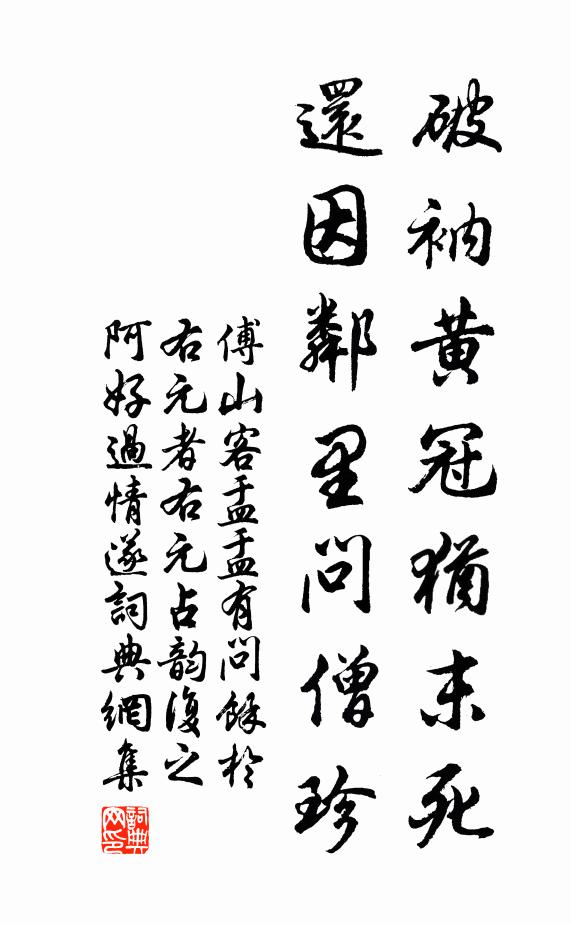 破衲黃冠猶未死
還因鄰里問僧珍
傅山客盂盂有問餘於
右元者右元占韵復之
阿好過情遂詞典網集
詞典网印